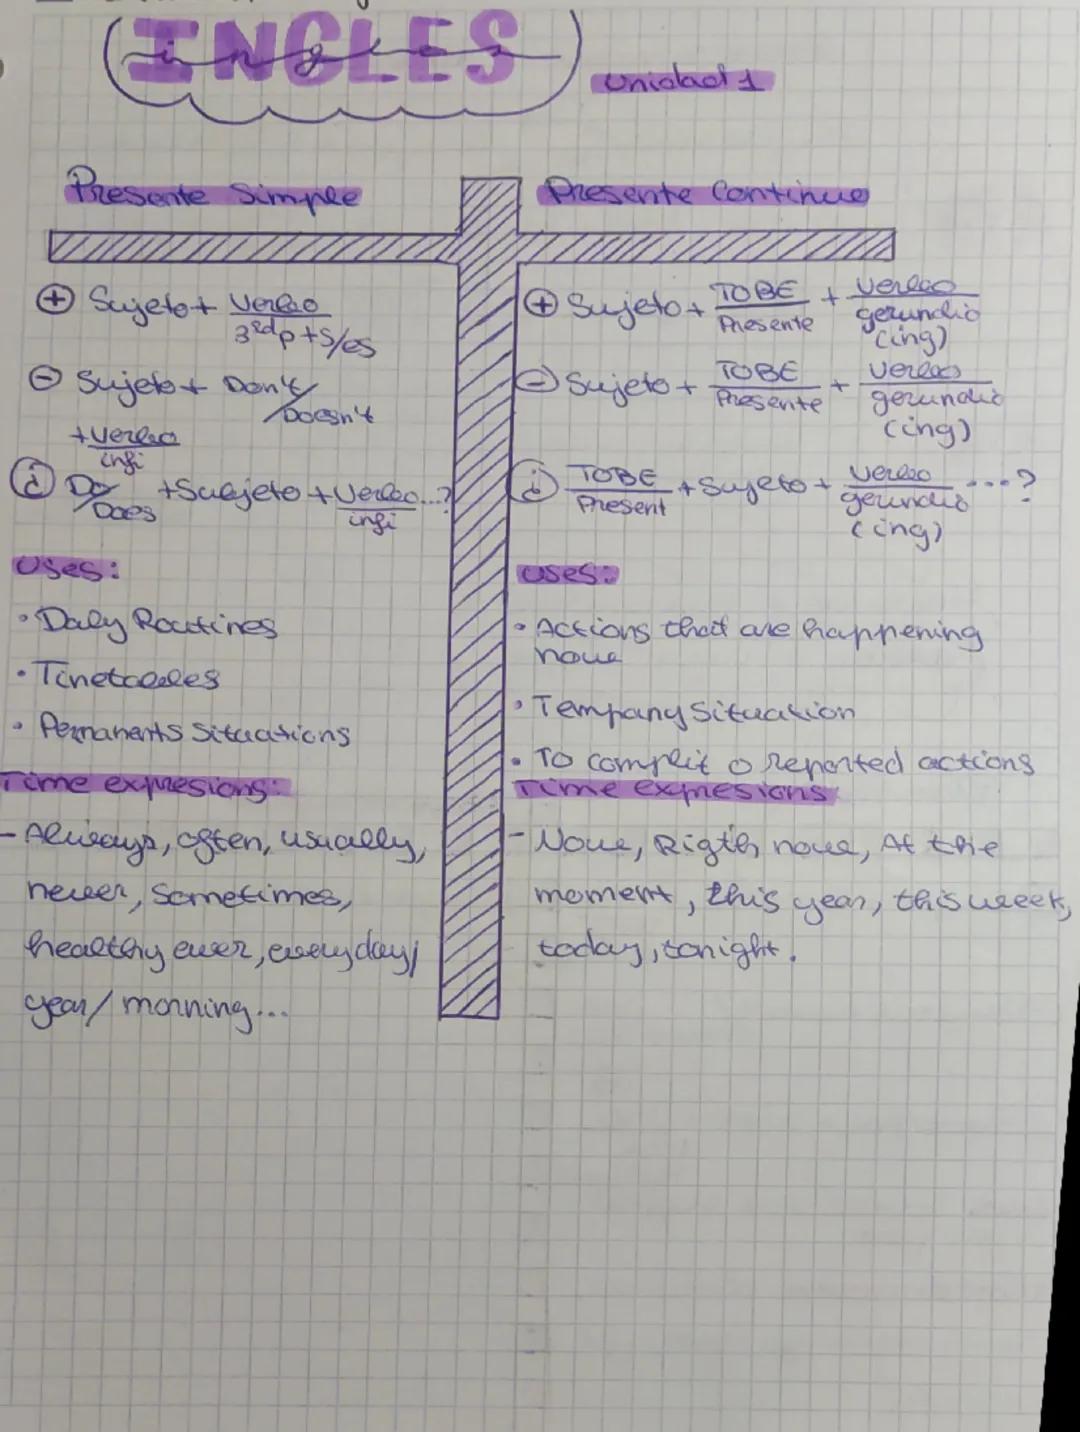 INGLES
ingles
Unidad 1
Presente Simple
⊕ Sujeto + Verbo
3rd p + s/es
⊖ Sujeto + Don't/
Doesn't
+ Verbo
infi
¿ Do/
Does + Subjeto + Verbo...?
infi
Uses:
• Daly Routines
• Tinetables
• Permanents Situations
Time expresions:
- Always, often, usually,
never, Sometimes,
healthy ever, everyday/
year/ morning...
Presente Continuo
⊕ Sujeto + TO BE + Verbo
Presente gerundio
(ing)
⊖ Sujeto + TO BE + Verbo
Presente gerundio
(ing)
¿ TO BE + Sujeto + Verbo ...?
Present gerundio
(ing)
Uses:
• Actions that are happening
now
• Tempany Situation
• To complit o reported actions
Time expresions
- Now, Rigth now, At the
moment, this year, this week,
today, tonight.